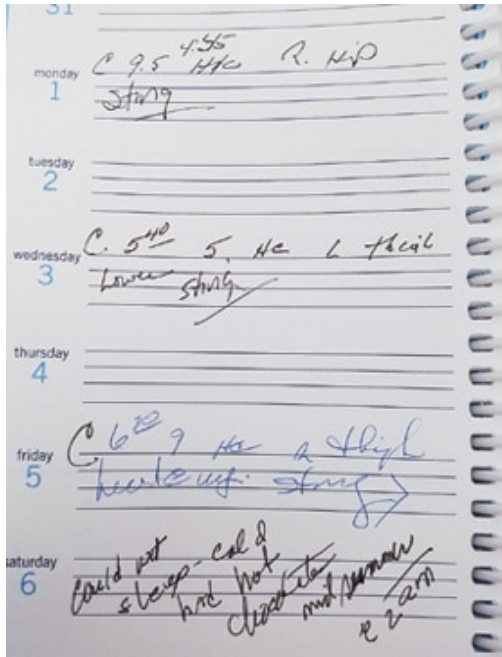 31
monday
1
C 9.5 4:55 R. Hip
Sting
tuesday
2
wednesday
3
C. 5 40 5. L thigh
Lower Sting
thursday
4
friday
5
C 6 20 9 R thigh
sting
saturday
6
Could not
sleep - cold
hot
chocolate
midsummer
2 am